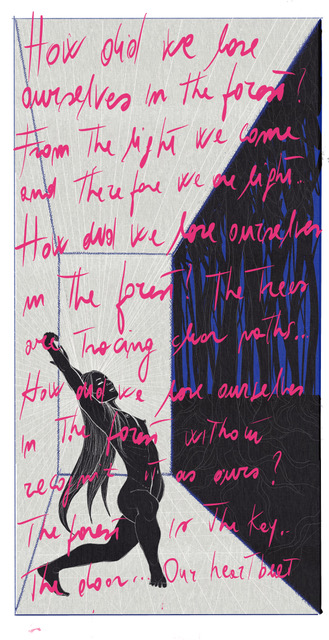 How did we lose
ourselves in the forest?
From the light we come
and therefore we are light..
How did we lose ourselves
in the forest? The Trees
are Tracing clear paths..
How did we lose ourselves
In The forest without
it as ours?
The forest is The Key..
The door... Our heartbeat